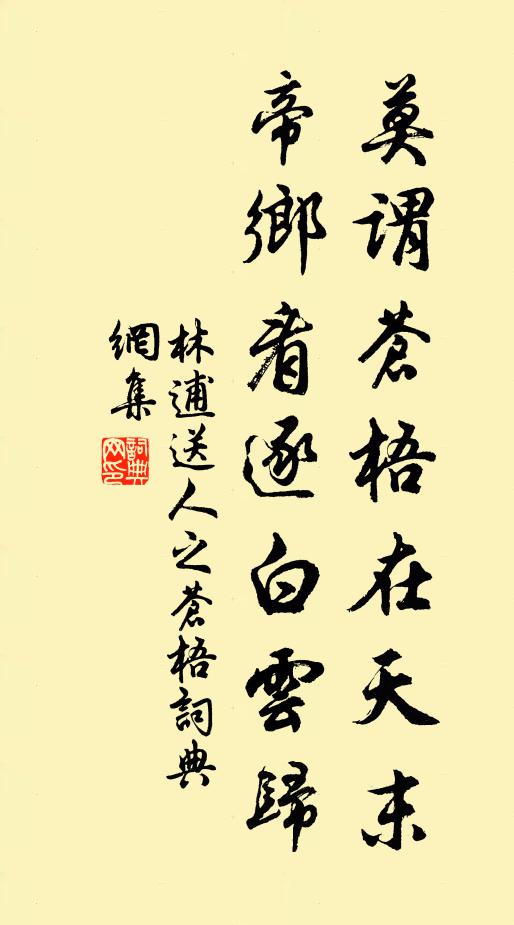 莫謂蒼梧在天末
帝鄉看逐白雲歸
林逋送人之蒼梧詞典
網集
詞典網印